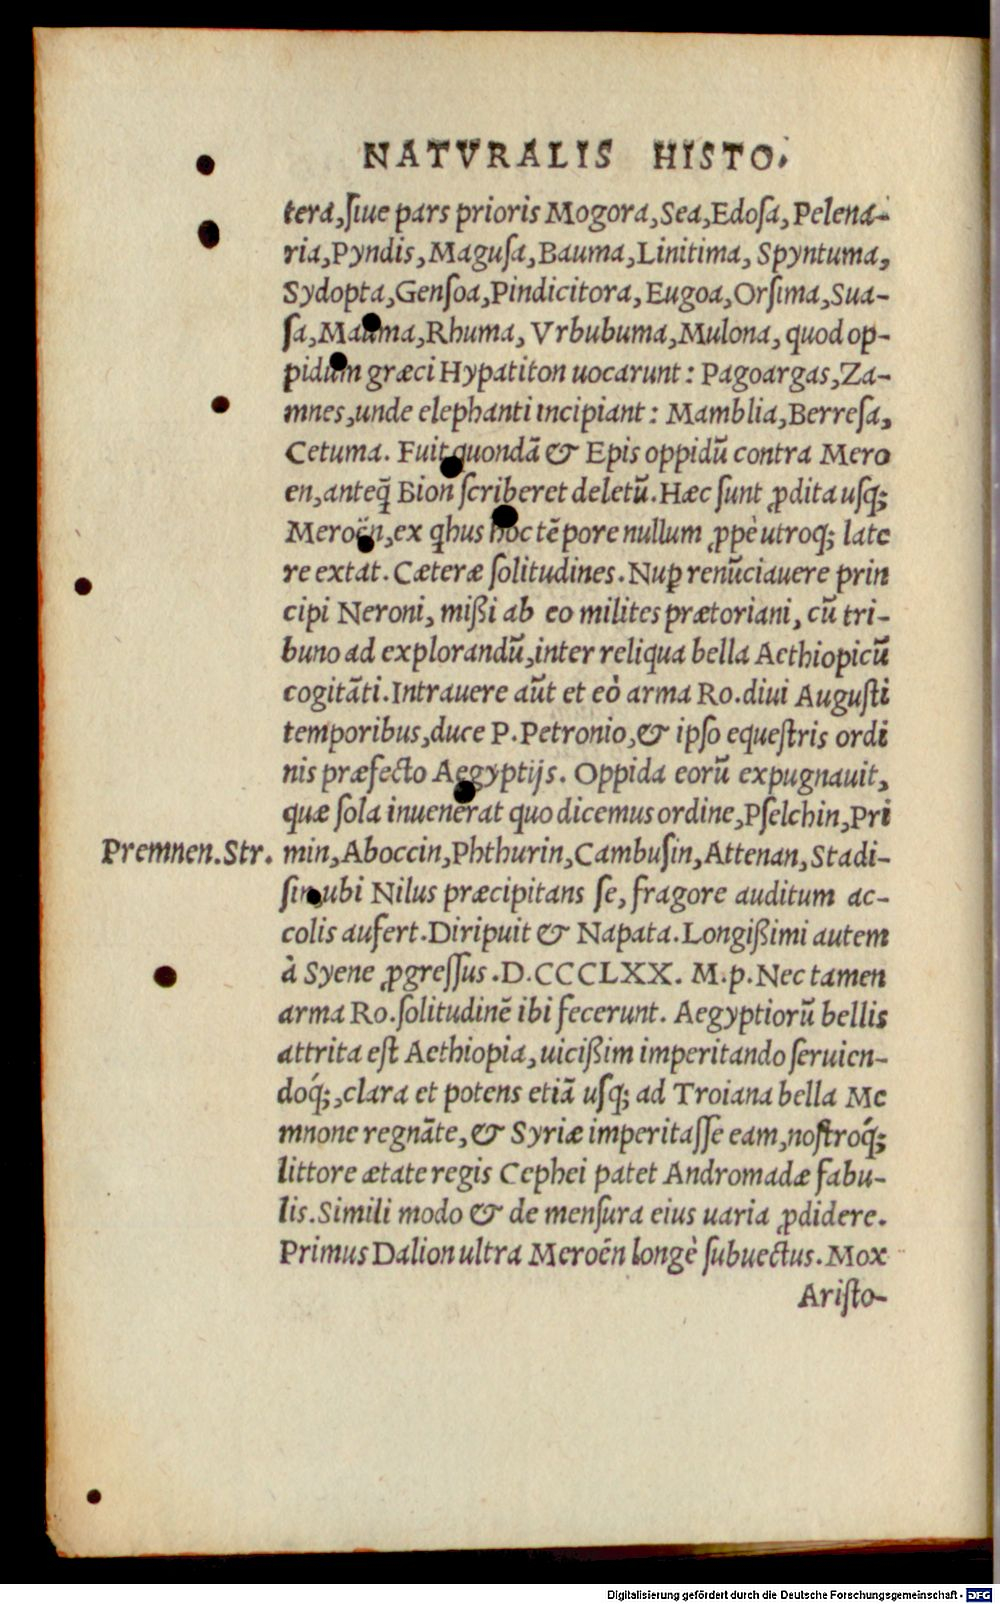 NATVRALIS HISTO.
tera,ſiue pars prioris Mogora,Sea,Edoſa,Pelena-
ria,Pyndis,Maguſa,Bauma,Linitima, Spyntuma,
Sydopta,Genſoa,Pindicitora,Eugoa,Orſima,Sua-
ſa,Mauma,Rhuma, Vrbubuma,Mulona, quod op-
pidum græci Hypatiton uocarunt: Pagoargas,Za-
mnes,unde elephanti incipiant: Mamblia,Berreſa,
Cetuma. Fuit quondã & Epis oppidũ contra Mero
en,anteq̃ Bion ſcriberet deletũ.Hæc ſunt ꝓdita uſq;
Meroën,ex qbus hoc tẽpore nullum ꝓpè utroq; late
re extat. Cæteræ ſolitudines. Nuꝑ renũciauere prin
cipi Neroni, mißi ab eo milites prætoriani, cũ tri-
buno ad explorandũ,inter reliqua bella Aethiopicũ
cogitãti.Intrauere aũt et eò arma Ro.diui Auguſti
temporibus,duce P.Petronio,& ipſo equeſtris ordi
nis præfecto Aegyptijs. Oppida eorũ expugnauit,
quæ ſola inuenerat quo dicemus ordine,Pſelchin,Pri
Premnen.Str. min,Aboccin,Phthurin,Cambuſin,Attenan,Stadi-
ſin,ubi Nilus præcipitans ſe, fragore auditum ac-
colis aufert.Diripuit & Napata.Longißimi autem
à Syene ꝓgreſſus.D.CCCLXX. M.p.Nec tamen
arma Ro.ſolitudinẽ ibi fecerunt. Aegyptiorũ bellis
attrita eſt Aethiopia,uicißim imperitando ſeruien-
doq́;,clara et potens etiã uſq; ad Troiana bella Me
mnone regnãte,& Syriæ imperitaſſe eam,noſtroq́;
littore ætate regis Cephei patet Andromadæ fabu-
lis.Simili modo & de menſura eius uaria ꝓdidere.
Primus Dalion ultra Meroën longè ſubuectus.Mox
Ariſto-
Digitalisierung gefördert durch die Deutsche Forschungsgemeinschaft - DFG